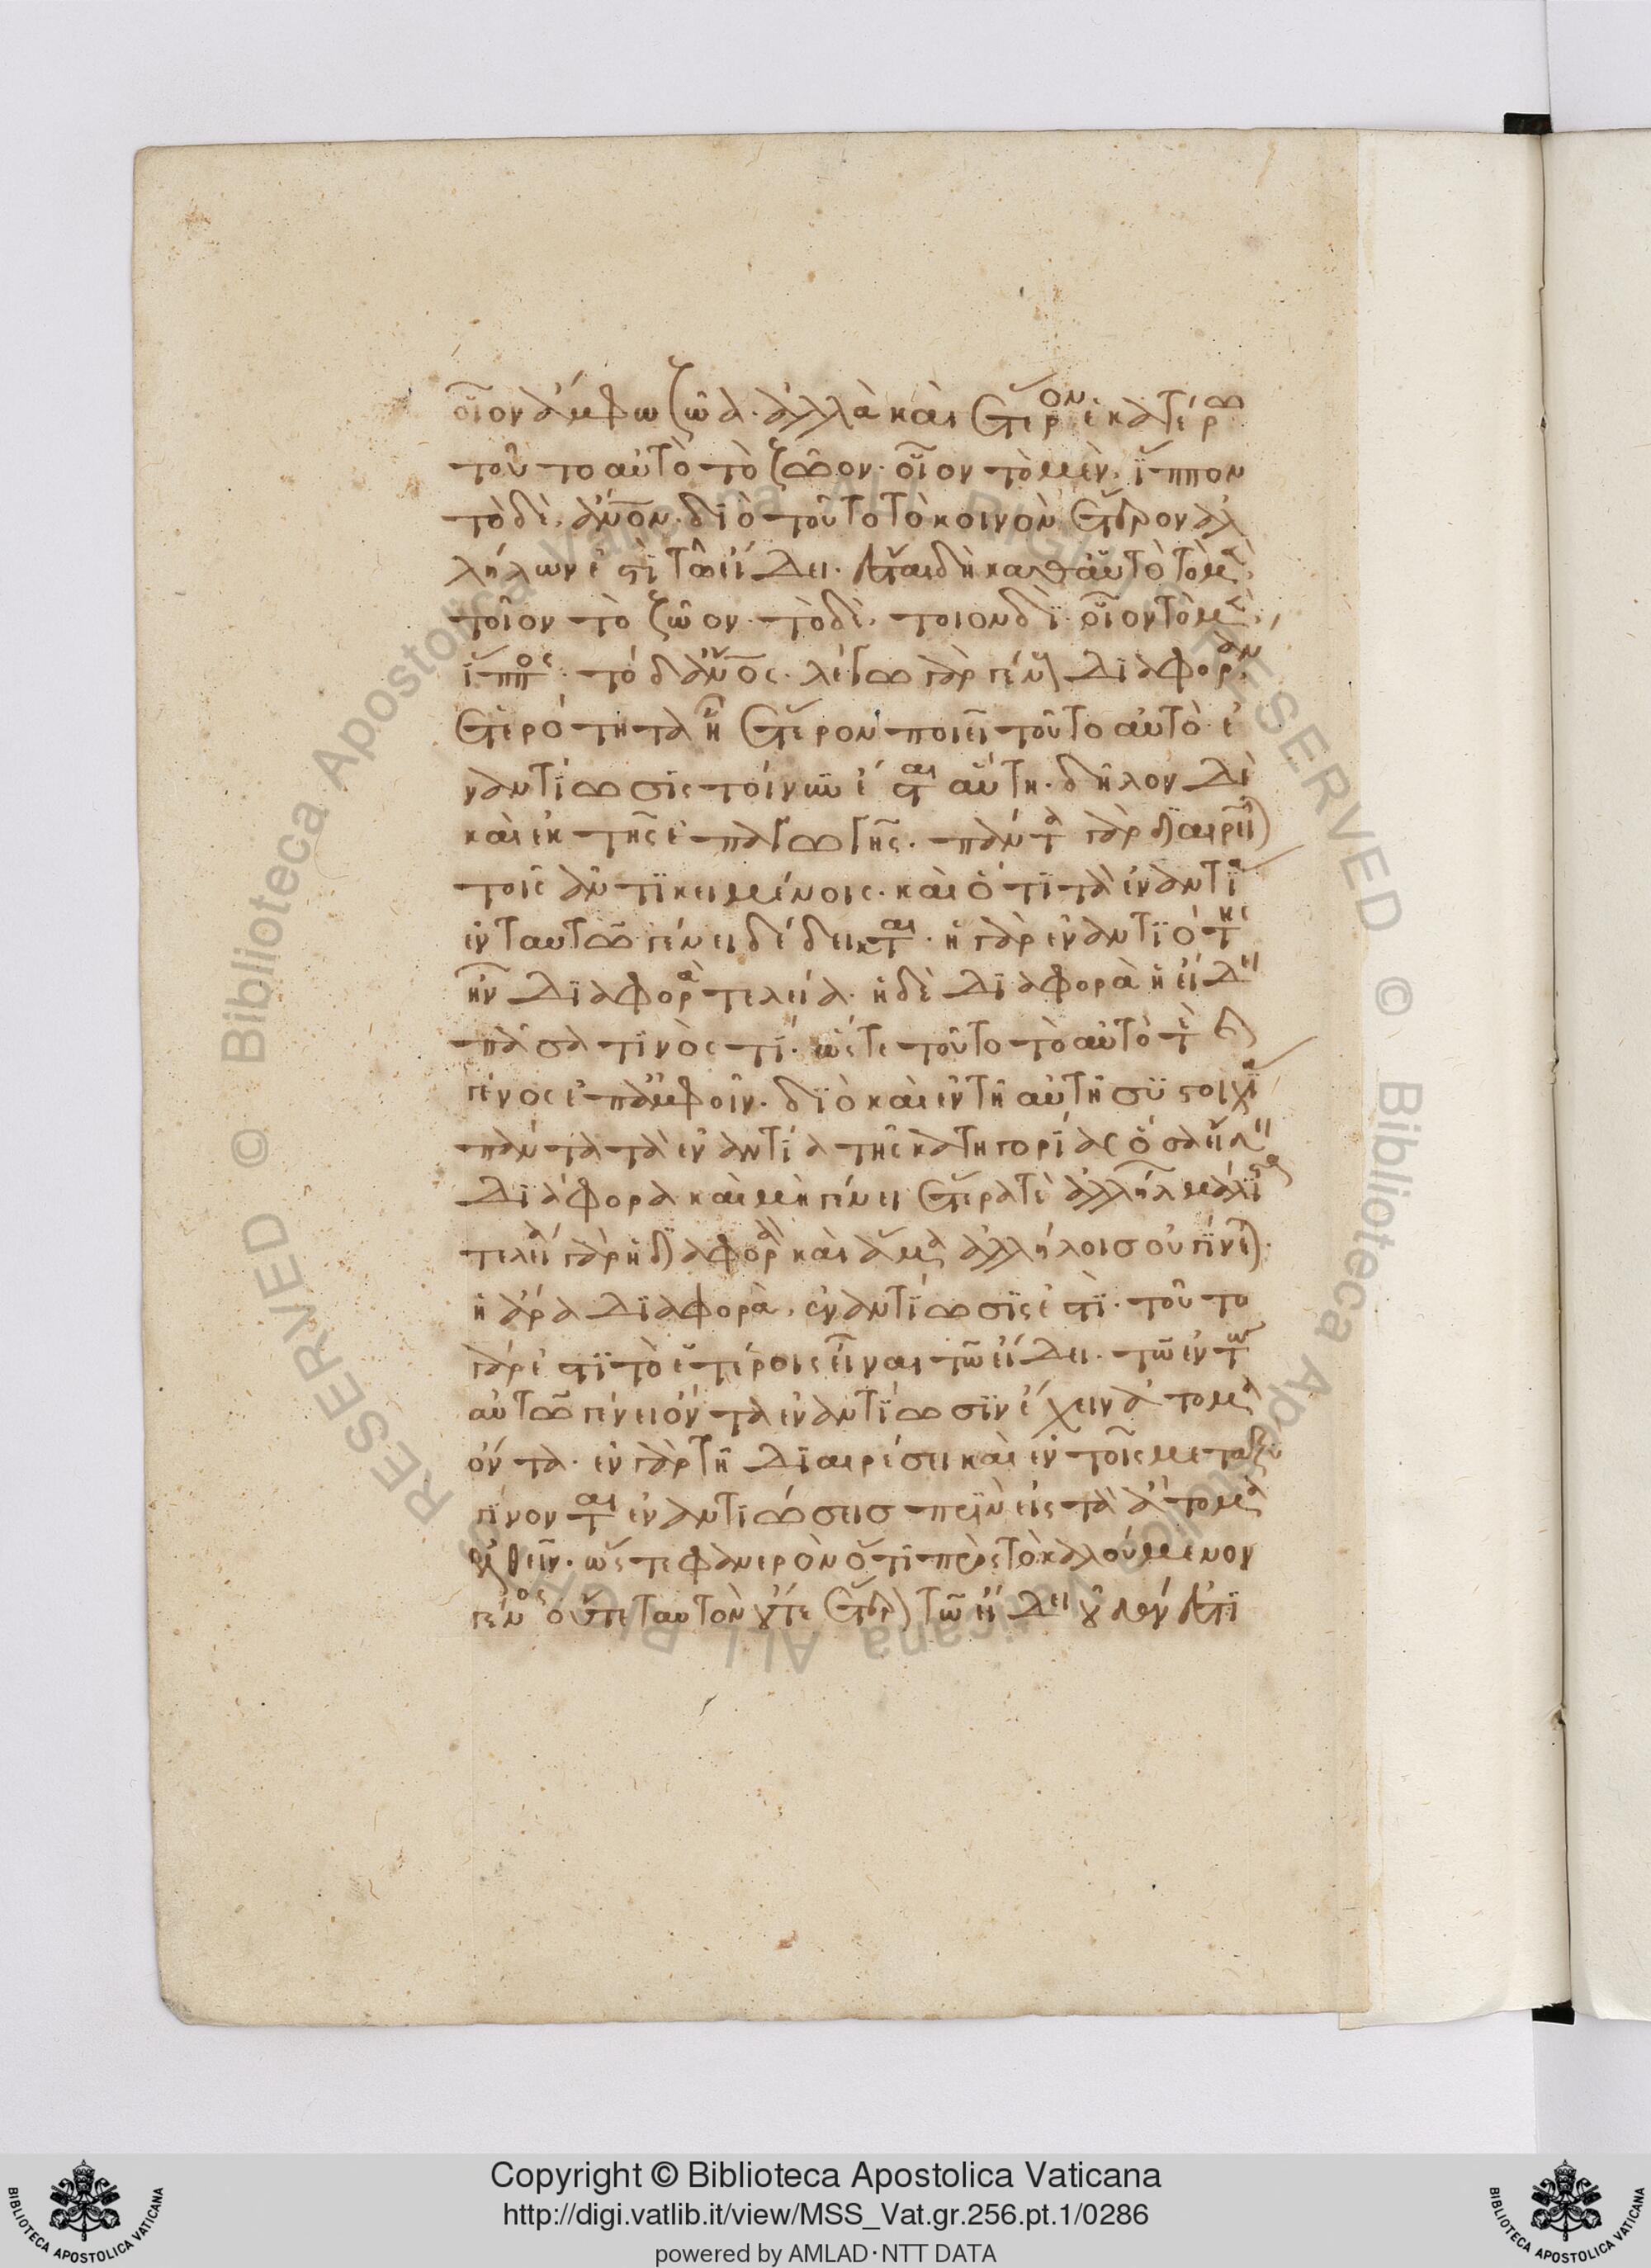 οἷον ἄμφω ζῶα· ἀλλὰ καὶ ἕτερον ἑκατέρω
τοῦτο αὐτὸ τὸ ζῶον· οἷον τὸ μὲν, ἵππον
τὸ δὲ, ἄνον· διὸ τοῦτο τὸ κοινὸν ἕτερον ἀλ
λήλων ἐστὶ τῶ εἴδει· ἔσται δὴ καθ αὑτὸ τὸ μὲν,
τοῖον τὸ ζῶον· τὸ δὲ, τοιονδί· οἷον τὸ μὲν,
ἵππος· τὸ δ ἄνος· λέγω γὰρ γένους διαφορὰν
ἑτερότητα ἣ ἕτερον ποιεῖ τοῦτο αὐτό· ἐ
ναντίωσις τοίνυν ἔσται αὕτη· δῆλον δὲ
καὶ ἐκ τῆς ἐπαγωγῆς· πάντα γὰρ διαιρεῖται
τοῖς ἀντικειμένοις· καὶ ὅτι τὰ ἐναντία
ἐν ταυτῶ γένει δέδεικται· ἡ γὰρ ἐναντιότης
ἦν διαφορὰ τελεία· ἡ δὲ διαφορὰ ἡ εἴδει
πᾶσα τινὸς τί· ὥστε τοῦτο τὸ αὐτό τε καὶ
γένος ἐπ ἀμφοῖν· διὸ καὶ ἐν τῆ αὐτῆ συστοιχία
πάντα τὰ ἐναντία τῆς κατηγορίας ὅσα εἴδει
διάφορα καὶ μὴ γένει ἕτερά τε ἀλλήλων μάλιστα
τελεία γὰρ ἡ διαφορὰ καὶ ἅμα ἀλλήλοις οὐ γίνεται·
ἡ ἄρα διαφορὰ, ἐναντίωσις ἐστί· τοῦτο
γάρ ἐστι τὸ ἑτέροις εἶναι τῶ εἴδει· τῶ ἐν τ
αὐτῶ γένει ὄντα ἐναντίωσιν ἔχειν ἄτομα
ὄντα· ἐν γὰρ τῆ διαιρέσει καὶ ἐν τοῖς μεταξὺ
γίνονται ἐναντιώσεις πρὶν εἰς τὰ ἄτομα
ἐλθεῖν· ὥστε φανερὸν ὅτι πρὸς τὸ καλούμενον
γένος οὔτε ταυτὸν οὔτε ἕτερον τῶ εἴδει οὐθέν ἐστι